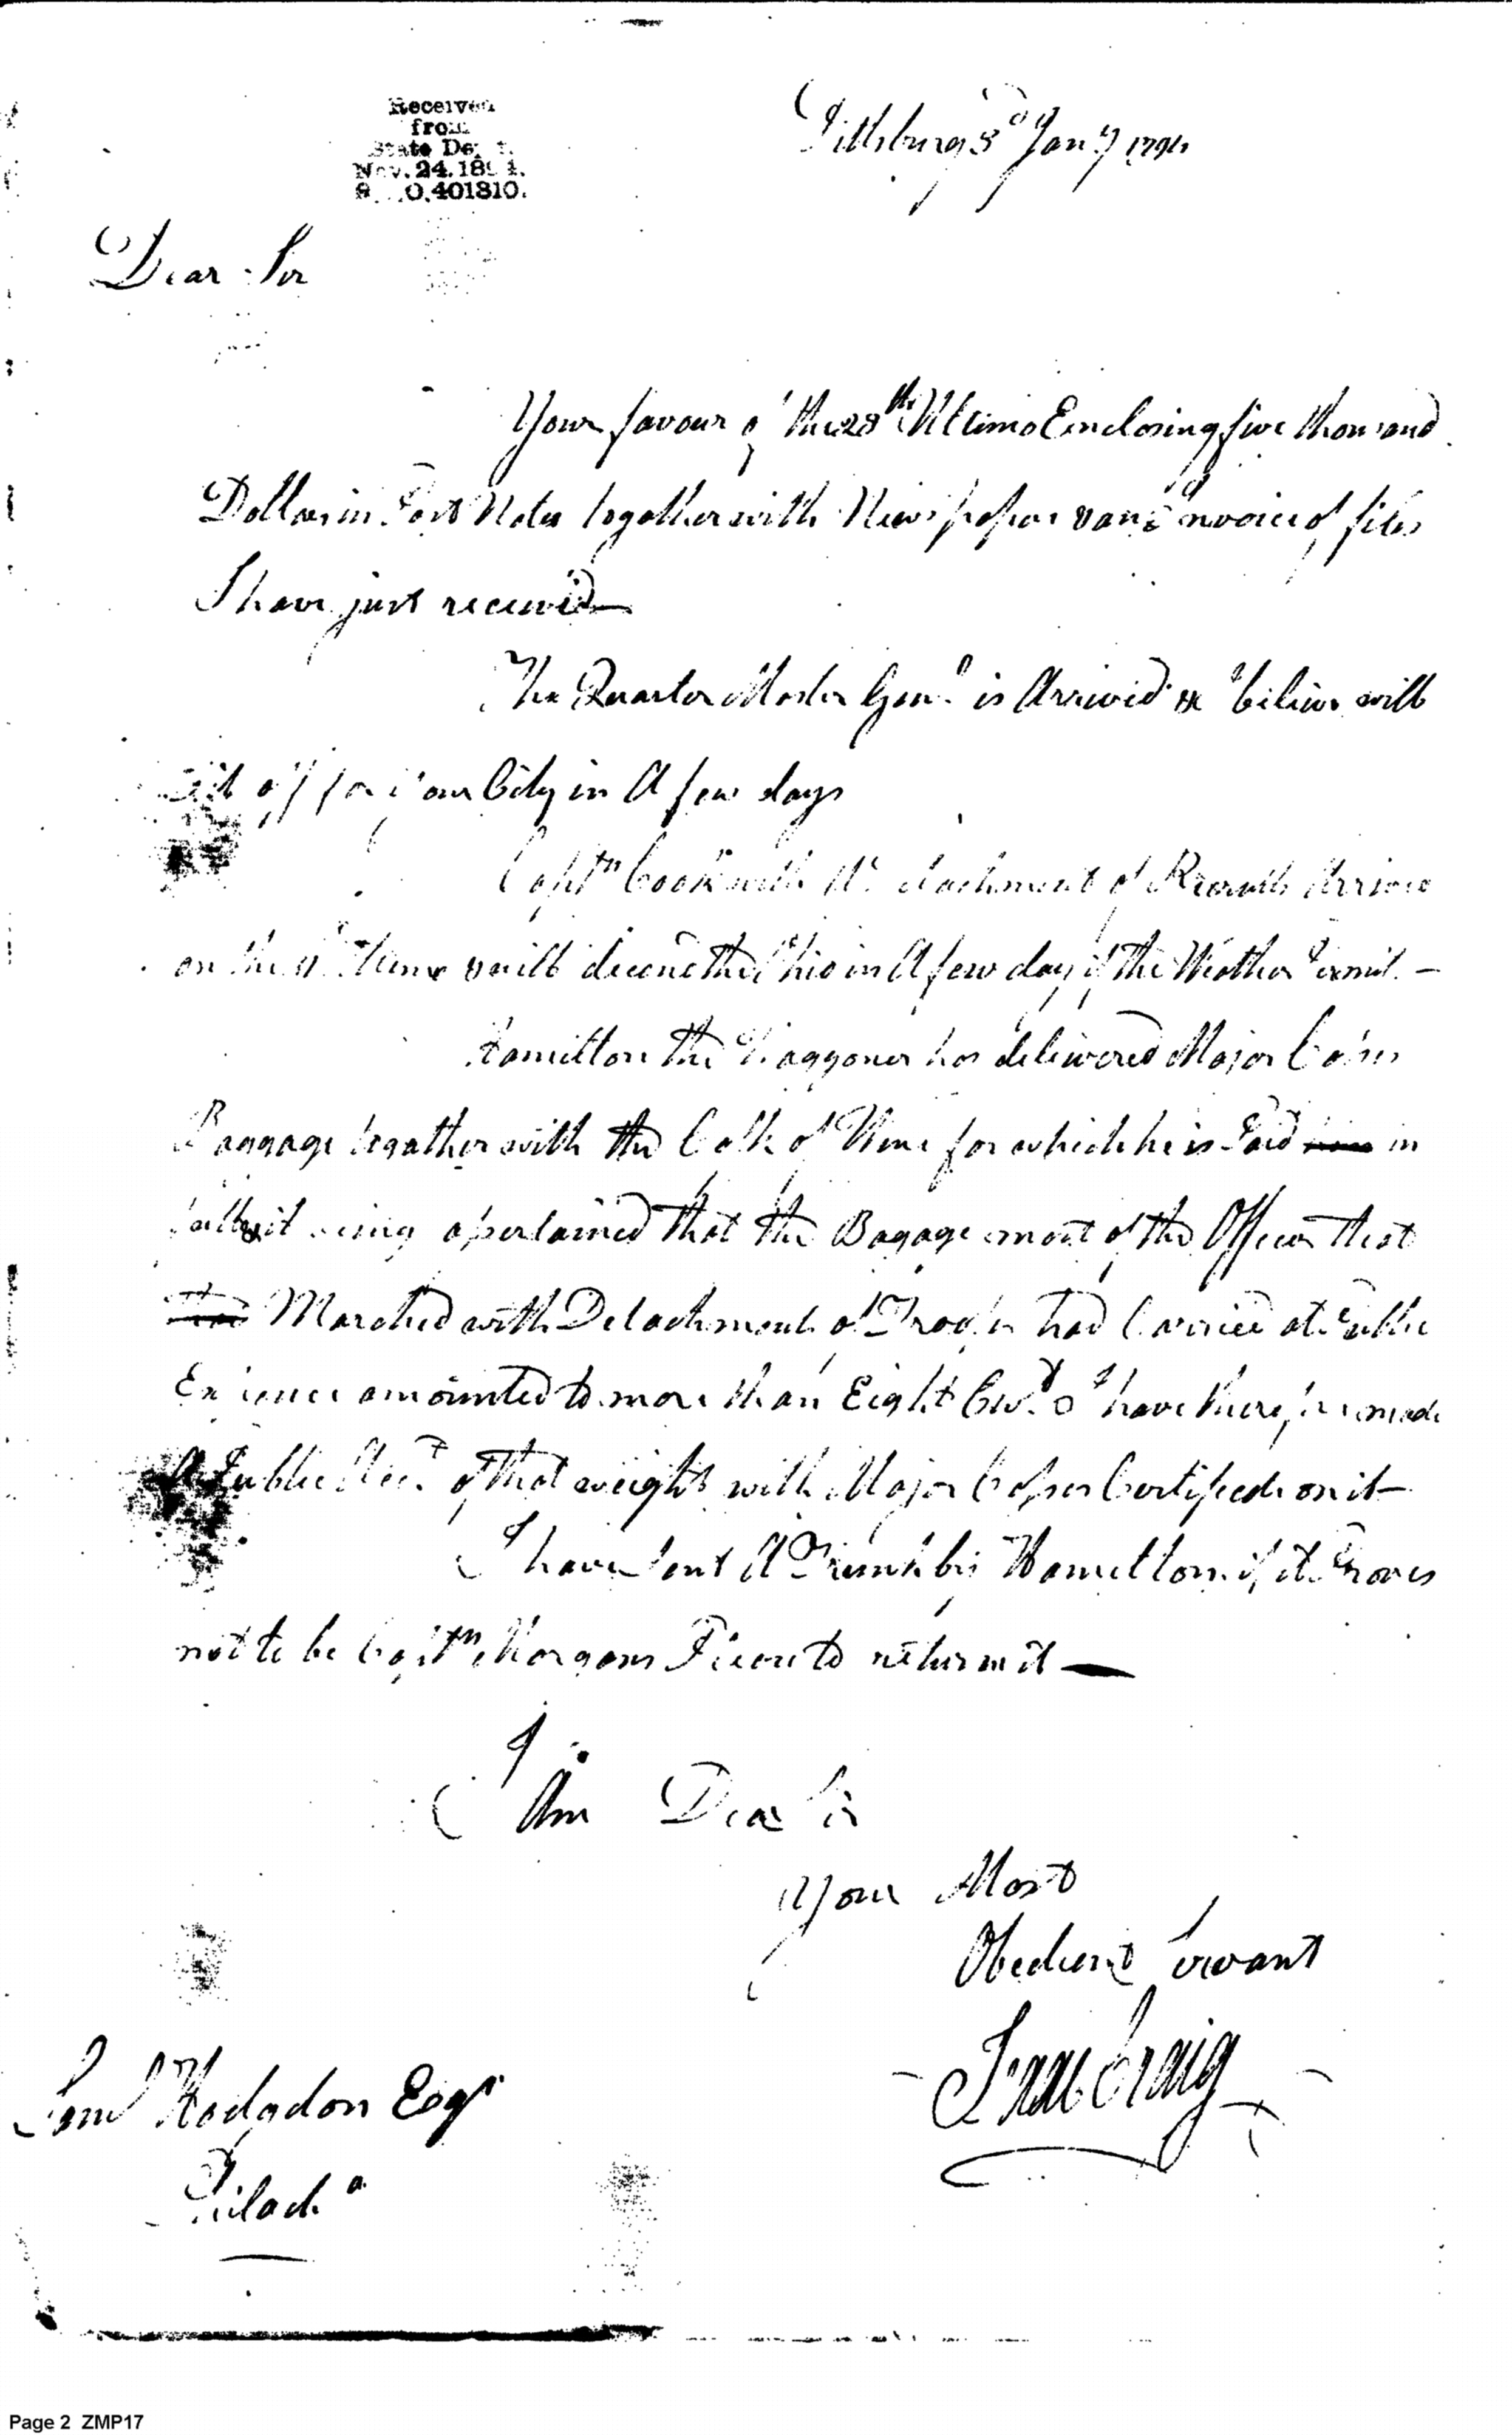 Received
from
State Dept.
Nov. 24. 1894.
O. 401810.
Pittsburg 3d Jany 1794
Dear Sir
Your favour of the 28th Ultimo Enclosing five thousand
Dollars in Post Notes together with News papers & an Invoice of files
I have just received
The Quarter Master Genl is Arrived & I believe will
Set off for your City in A few days
Captn Cook with detachment of Recruits Arrived
on the will decend the Ohio in A few days if the Weather Permit. —
Hamilton the Waggoner has delivered Major
Baggage together with the Cask of Wine for which he is Paid in
it being assertained that the Bagage most of the Officers that
Marched with Detachments of Troops had Carried at Public
Expence amounted to more than Eight Cwt. I have therefore made
A Public Acct of that weight with Major Certificate on it —
I have sent A Trunk by Hamilton if it Proves
not to be Captn Morgans Please to return it —
I
Am Dear Sir
Your Most
Obedient Servant
Isaac Craig
Saml Hodgdon Esqr
Philada
Page 2 ZMP17